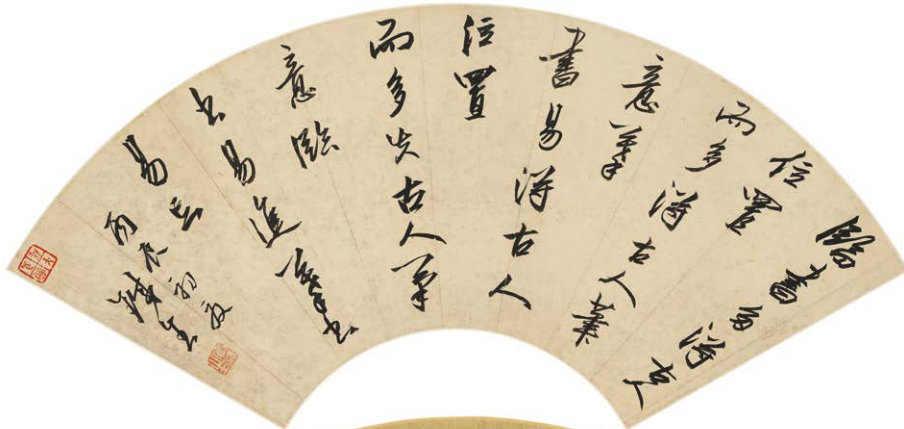 臨書易得古人
位置
而多得古人筆
意摹
書易得古人
位置
而多失古人筆
意臨
書易進摹書
易忘
丙辰初夏